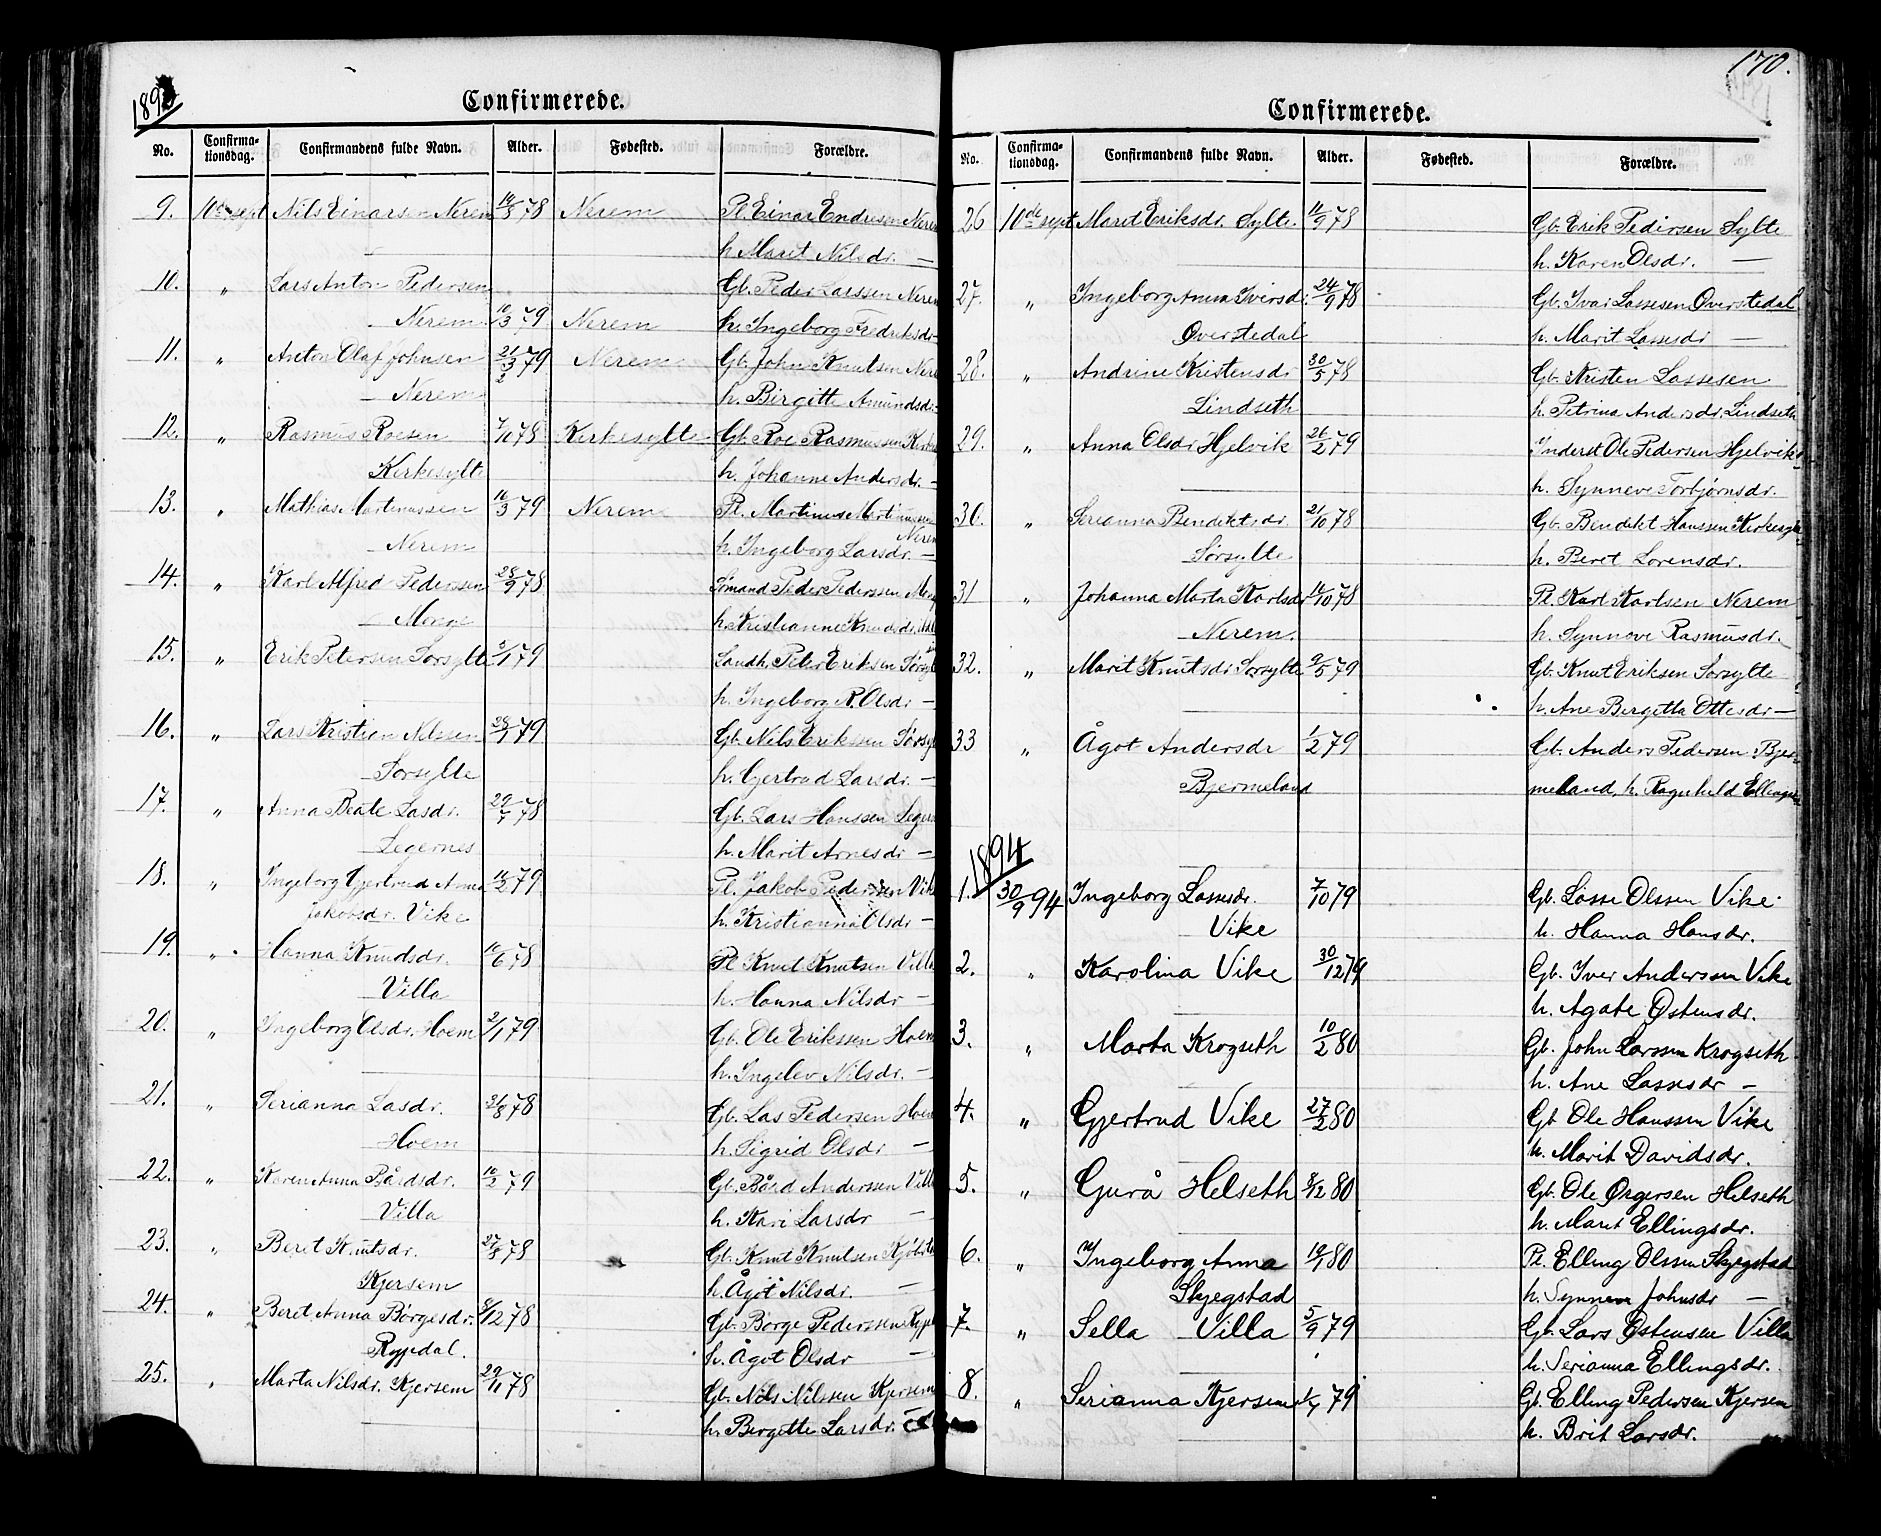 1893
Confirmerede.
No. Confirma-tionsdag. Confirmandens fulde Navn. Alder. Fødested. Forældre.
9. 10de sept Nils Einarsen Nerem 14/3 78 Nerem Pl. Einar Endresen Nerem
h. Marit Nilsdr. —
10. " Lars Anton Pedersen Gb. Peder Larssen Nerem
Nerem 10/3 79 Nerem h. Ingeborg Fredriksdr.
11. " Anton Olaf Johnsen 21/3 79 Nerem Gb. John Knutsen
Nerem h. Birgitte Amundsdr.
12. " Rasmus Roesen 7/10 78 Kirkesylte Gb. Roe Rasmussen
Kirkesylte h. Johanne Andersdr. —
13. " Mathias Martinussen 16/3 79 Nerem Pl. Martinus Martinussen
Nerem
Nerem h. Ingeborg Larsdr. —
14. " Karl Alfred Pedersen 28/9 78 Sømand Peder Pederssen
Monge h. Kristianne Knudsdr.
15. " Erik Petersen Sorsylte 3/1 79 Landh. Peter Eriksen
h. Ingeborg R. Olsdr —
16. " Lars Kristian Nilssen 79 Gb. Nils Erikssen
Sorsylte h. Gjertrud Larsdr. —
17. " Anna Beate Lasdr. 78 Gb. Lars Hanssen
Legernes h. Marit Arnesdr —
18. " Ingeborg Gjertrud Anna 16/2 79 Pl. Jakob Pedersen Vike
Jakobsdr. Vike h. Kristianna Olsdr —
19. " Hanna Knudsdr. 10/6 78 Pl Knut Knutsen Villa
Villa h. Hanna Nilsdr —
20. " Ingeborg Olsdr. Hoem 2/1 79 Gb. Ole Erikssen Hoem
h. Ingelev Nilsdr. —
21. " Serianna Lasdr. 31/8 78 Gb. Las Pedersen Hoem
Hoem h. Sigrid Olsdr —
22. " Karen Anna Bårdsdr. 10/2 79 Gb. Bård Andersen Villa
Villa h. Kari Larsdr —
23. " Beret Knutsdr. 27/8 78 Gb. Knut Knutsen
Kjersem h. Ågot Nilsdr. —
24. " Beret Anna Børgesdr. 8/12 78 Gb. Børge Pederssen
Rypdal. h. Ågot Olsdr —
25. " Marta Nilsdr. Kjersem 29/11 78 Gb. Nils Nilssen Kjersem
h. Bergette Larsdr.
170.
Confirmerede.
No. Confirma-tionsdag. Confirmandens fulde Navn. Alder. Fødested. Forældre.
26 10de sept Marit Eriksdr. Sylte. 11/9 78 Gb. Erik Pedersen Sylte
h. Karen Olsdr. —
27. " Ingeborg Anna Iversdr. 24/9 78 Gb. Ivar Lassesen Overstedal
Overstedal h. Marit Lassesdr —
28. " Andrine Kristensdr 30/5 78 Gb. Kristen Lassesen
Lindseth h. Petrina Andersdr. Lindseth
29. " Anna Olsdr Hjelvik 26/2 79 Inderst Ole Pedersen Hjelvik
h. Synneve Torbjørnsdr.
30. " Serianna Bendiktsdr. 21/10 78 Gb. Bendikt Hanssen Kirkesylte
Sørsylte h. Beret Lorensdr.
31 " Johanna Marta Karlsdr 16/10 78 Pl. Karl Karlsen Nerem
Nerem. h. Synnove Rasmusdr.
32. " Marit Knutsdr Sorsylte 9/5 79 Gb. Knut Eriksen Sorsylte
h. Ane Bergetta Ottesdr —
33 " Ågot Andersdr 1/2 79 Gb. Anders Pedersen Bjer-
Bjermeland meland, h. Ragnhild
1894
1. 30/9 94 Ingeborg Lassesdr. 7/10 79 Gb. Lasse Olssen Vike
Vike h. Hanna Hansdr.
2. " Karolina Vike 30/12 79 Gb. Iver Anderssen Vike
h. Agate Østensdr.
3. " Marta Krogseth 10/2 80 Gb. John Larssen Krogseth
h. Ane Lassesdr —
4. " Gjertrud Vike 27/2 80 Gb Ole Hanssen Vike
h. Marit Davidsdr.
5. " Gurå Helseth 8/12 80 Gb. Ole Ørgersen Helseth
h. Maret Ellingsdr.
6. " Ingeborg Anna 19/1 80 Pl. Elling Olssen Skjegstad
Skjegstad h. Synneva Johnsdr —
7. " Sella Villa 5/9 79 Gb. Lars Østensen Villa
h. Serianna Ellingsdr.
8. " Serianna Kjersem 79 Gb. Elling Pedersen Kjersem
h. Brit Larsdr.